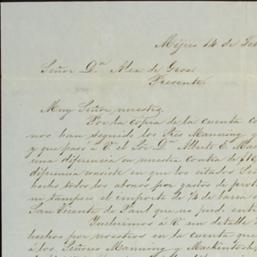 Mejico 14 de Feb
Señor Dn Alex de Grea
Presente
Muy Señor nuestro
Por la copia de la cuenta co
nos han seguido los Sres Manning y
y que pasó a V el Sr Dn Alberto E. Ma
una diferencia en nuestra contra de $16
diferencia consiste en que los citados Se
hecho todos los abonos por gastos de
ni tampoco el importe de ¼ de barra
San Vicente de Paul que no pudo entr
Incluimos a V un detalle
hechos por nosotros en la cuenta que
a los Señores Manning y Mackintosh,